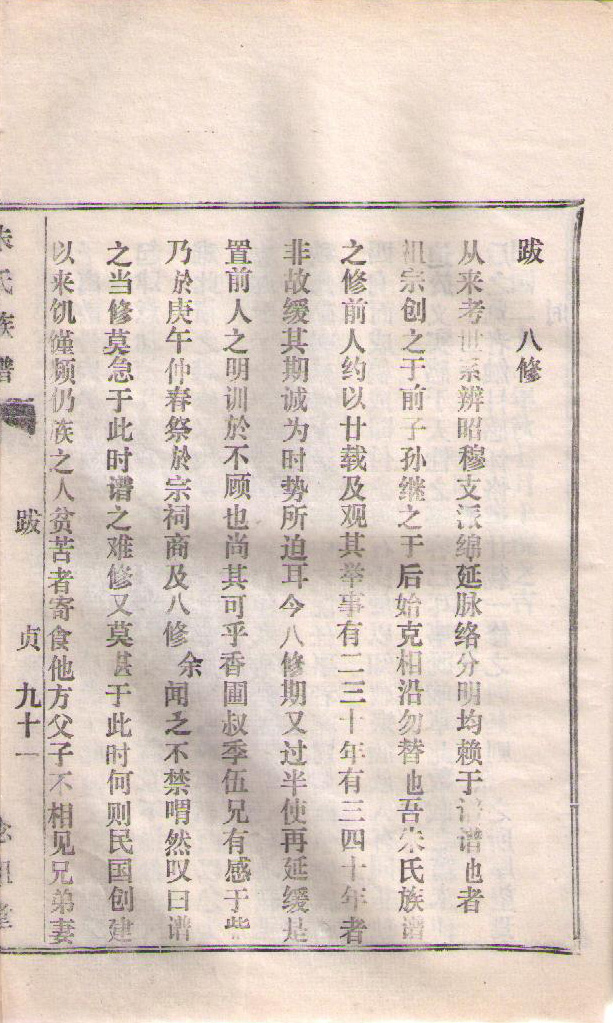 跋 八修
从来考世系辨昭穆支派绵延脉络分明均赖于谱谱也者
祖宗创之于前子孙继之于后始克相沿勿替也吾朱氏族谱
之修前人约以廿载及观其举事有二三十年有三四十年者
非故缓其期诚为时势所迫耳今八修期又过半使再延缓是
置前人之明训於不顾也尚其可乎香圃叔季伍兄有感于紫
乃於庚午仲春祭於宗祠商及八修余闻之不禁喟然叹曰谱
之当修莫急于此时谱之难修又莫甚于此时何则民国创建
以来饥馑频仍族之人贫苦者寄食他方父子不相见兄弟妻
朱氏族谱 跋 贞 九十一 念祖堂